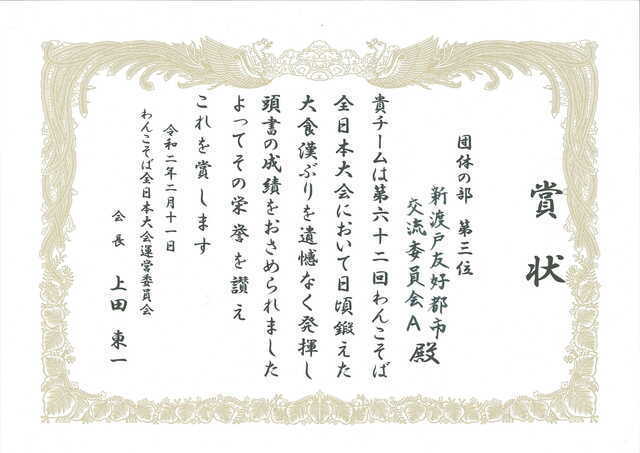 賞状
団体の部　第三位
新渡戸友好都市
交流委員会A　殿
貴チームは第六十二回わんこそば
全日本大会において日頃鍛えた
大食漢ぶりを遺憾なく発揮し
頭書の成績をおさめられました
よってその栄誉を讃え
これを賞します
令和二年二月十一日
わんこそば全日本大会運営委員会
会長　上田　東一